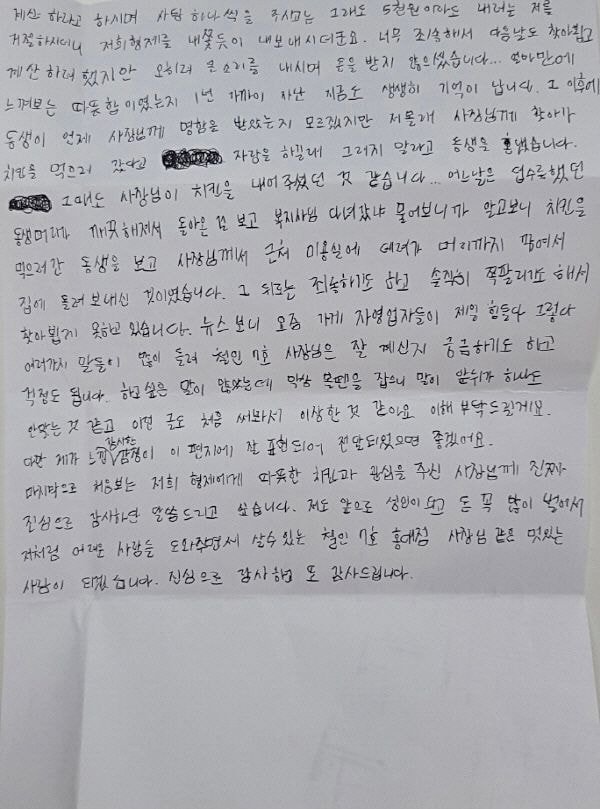 계산 하라고 하시며 사탕 하나씩 을 주시고는 그래도 5천원 이라도 내려는 저를
거절하시더니 저희형제를 내쫓듯이 내보내시더군요. 너무 죄송해서 다음날도 찾아뵙고
계산하려 했지만 오히려 큰소리를 내시며 돈을 받지 않으셨습니다... 얼마만에
느껴보는 따뜻함 이였는지 1년 가까이 지난 지금도 생생히 기억이 납니다. 그 이후에
동생이 언제 사장님께 명함을 받았는지 모르겠지만 저몰래 사장님께 찾아가
치킨을 먹으러 갔다고 자랑을 하길래 그러지 말라고 동생을 혼냈습니다.
그때도 사장님이 치킨을 내어 주셨던 것 같습니다... 어느날은 덥수룩했던
동생머리가 깨끗해져서 돌아온 걸 보고 복지사님 다녀갔냐 물어보니까 알고보니 치킨을
먹으러간 동생을 보고 사장님께서 근처 미용실에 데려가 머리까지 깎여서
집에 돌려보내신 것이였습니다. 그 뒤로는 죄송하기도 하고 솔직히 쪽팔리기도 해서
찾아뵙지 못하고 있습니다. 뉴스 보니 요즘 가게 자영업자들이 제일 힘들다 그렇다
여러가지 말들이 많이 들려 철인 7호 사장님은 잘 계신지 궁금하기도 하고
걱정도 됩니다. 하고싶은 말이 많았는데 막상 볼펜을 잡으니 말이 앞뒤가 하나도
안맞는 것 같고 이런 글도 처음 써봐서 이상한 것 같아요 이해 부탁드릴게요.
다만 제가 느낀 감사한 감정이 이 편지에 잘 표현되어 전달되었으면 좋겠어요.
마지막으로 처음보는 저희 형제에게 따뜻한 치킨과 관심을 주신 사장님께 진짜
진심으로 감사하단 말씀드리고 싶습니다. 저도 앞으로 성인이 되고 돈 꼭 많이 벌어서
저처럼 어려운 사람들 도와주면서 살수있는 철인 7호 홍대점 사장님 같은 멋있는
사람이 되겠습니다. 진심으로 감사하고 또 감사드립니다.